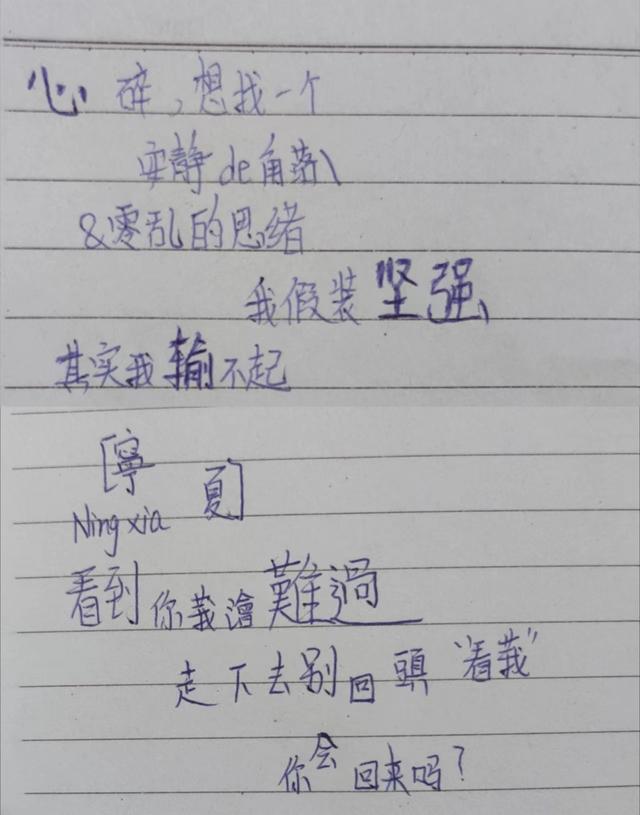 心碎,想找一个
安静de角落\
&零乱的思绪
我假装坚强
其实我输不起
[寧 夏]
Ningxia
看到你莪澮難過
走下去别回頭"看莪"
你会回来吗?